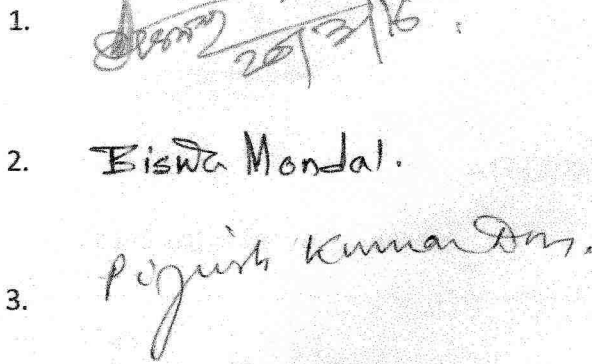 1. 26/3/16
2. Biswa Mondal.
Pijush Kumar Das.
3.